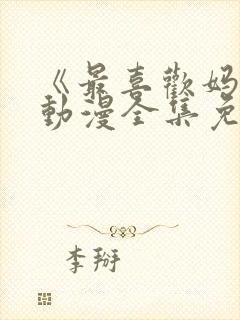 《最喜歡妈
動漫全集免
李掰